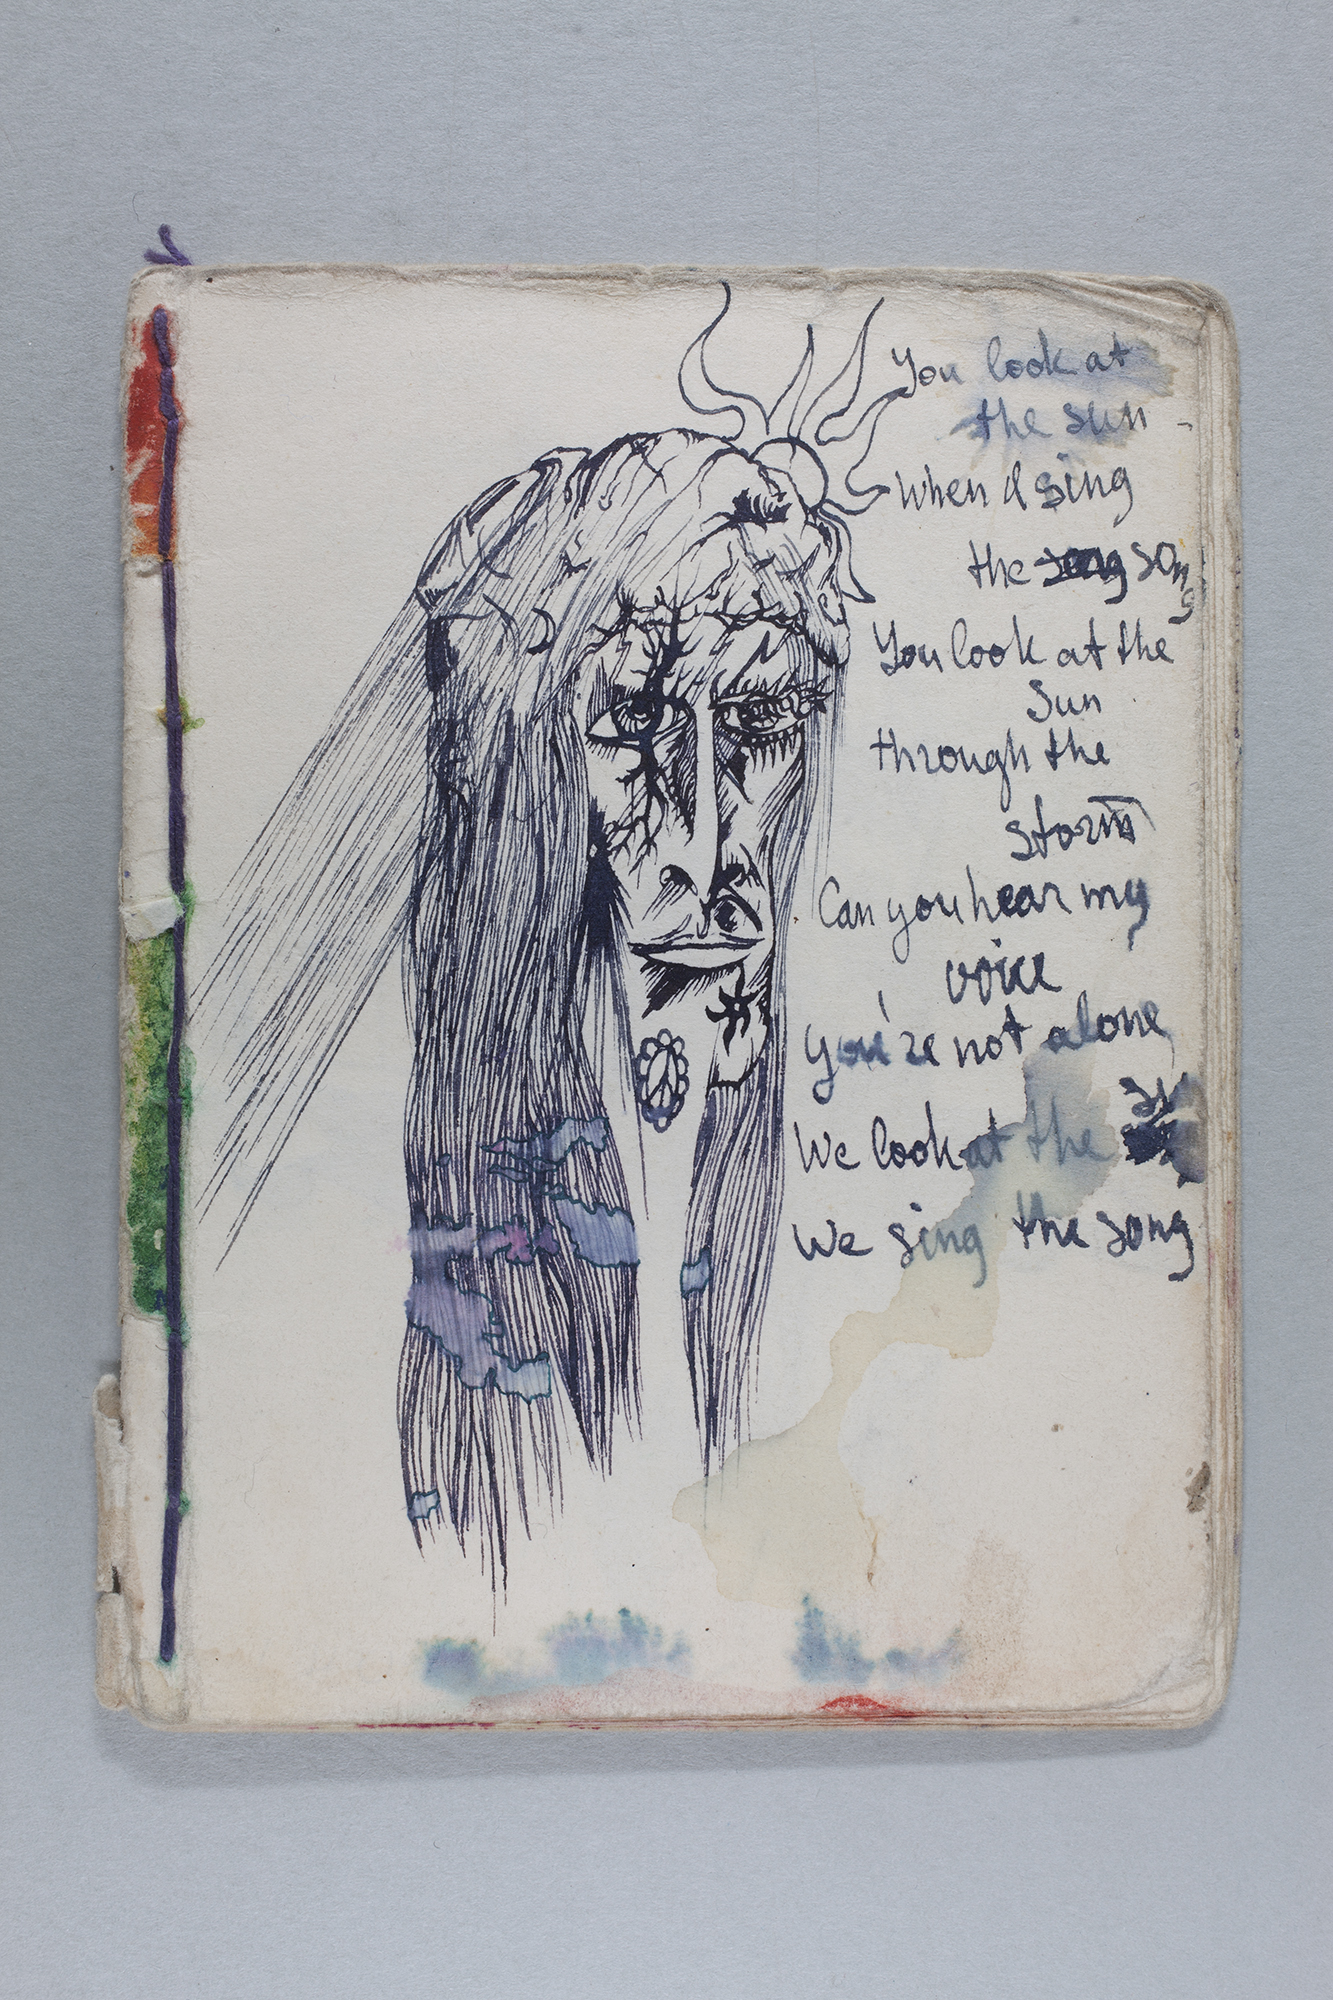 You look at
the sun
When I sing
the song song
You look at the
Sun
through the
storm
Can you hear my
voice
you're not alone
We look at the
We sing the song